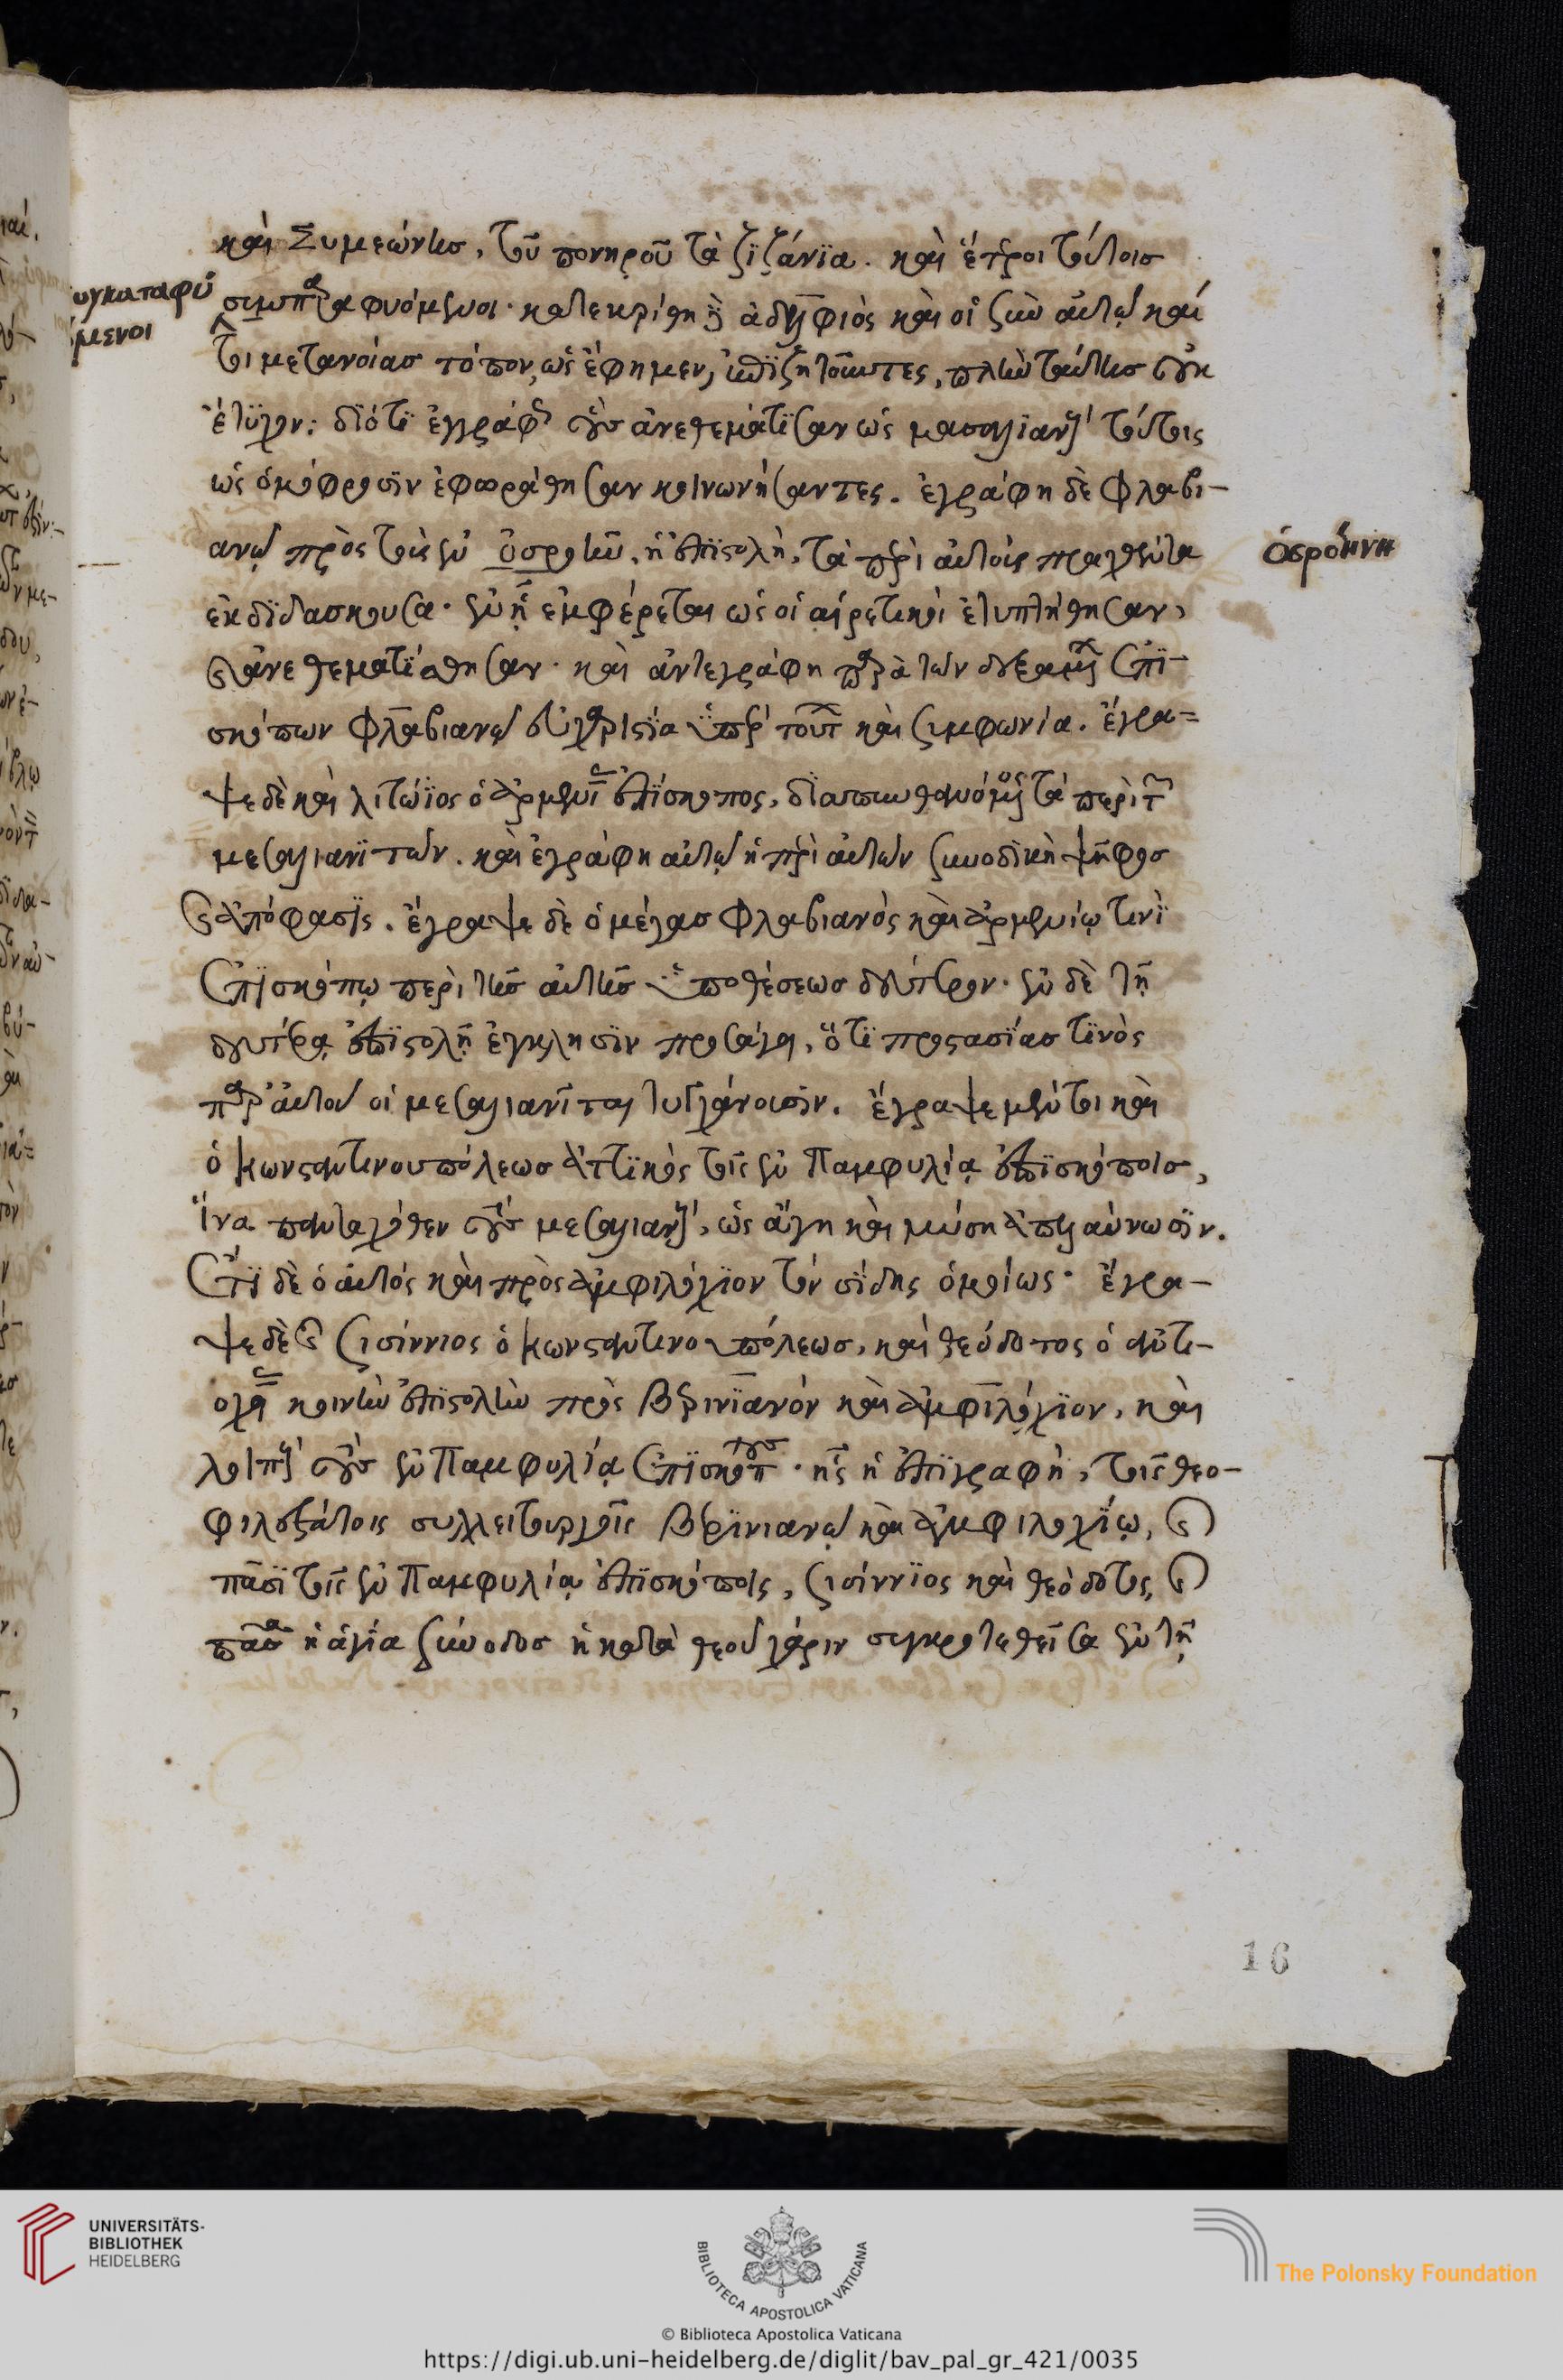 καὶ Συμεώνης, τοῦ πονηροῦ τὰ ζϊζάνϊα. καὶ ἕτεροι τούτοις
συγκαταφυόμενοι
συμπαραφυόμενοι. κατεκρίθη δὲ ἀδέλφιος καὶ οἱ σὺν αὐτῷ καί
τι μετανοίας τόπον, ὡς ἔφημεν, ἐπϊζητοῦντες, πλὴν ταύτης οὐκ
ἔτυχον: δϊότϊ ἐγγράφως οὓς ἀνεθεμάτϊσαν ὡς μασαλϊανοὺς τούτοις
ὡς ὁμόφροσϊν ἐφωράθησαν κοινωνήσαντες. ἐγράφη δὲ Φλαβι-
ανῷ πρὸς τοὺς ἐν ὀσροηνῇ, ἡ ἐπϊστολὴ, τὰ περὶ αὐτοὺς πραχθέντα
ὀσροήνη
ἐκδϊδάσκουσα. ἐν ᾗ ἐμφέρεται ὡς οἱ αἱρετικοὶ ἐτυπτήθησαν,
καὶ ἀνεθεματίσθησαν. καὶ ἀντεγράφη παρὰ τῶν δεξαμένων ἐπϊ-
σκόπων Φλαβιανῷ εὐχαριστία ὑπὲρ τούτων καὶ συμφωνία. ἔγρα-
ψε δὲ καὶ λιτώϊος ὁ ἀρμενίας ἐπίσκοπος, διαπυνθανόμενος τὰ περὶ τῶν
μεσαλιανϊτῶν. καὶ ἐγράφη αὐτῷ ἡ περὶ αὐτῶν συνοδϊκὴ ψῆφος
καὶ ἀπόφασϊς. ἔγραψε δὲ ὁ μέγας Φλαβιανὸς καὶ ἀρμενίῳ τινὶ
ἐπισκόπῳ περὶ τῆς αὐτῆς ὑποθέσεως δεύτερον. ἐν δὲ τῇ
δευτέρᾳ ἐπϊστολῇ ἔγκλησϊν προσάγει, ὅτϊ προστασίας τϊνὸς
παρ' αὐτοῦ οἱ μεσαλιανῖται τυγχάνουσϊν. ἔγραψε μέντοι καὶ
ὁ κωνσταντινουπόλεως ἀττϊκὸς τοῖς ἐν Παμφυλίᾳ ἐπϊσκόποις,
ἵνα πανταχόθεν τοὺς μεσαλιανοὺς, ὡς ἄγη καὶ μύση ἀπελαύνωσϊν.
ἔτϊ δὲ ὁ αὐτὸς καὶ πρὸς ἀμφιλόχϊον τὸν σίδης ὁμοίως. ἔγρα-
ψε δὲ καὶ σισίννιος ὁ κωνσταντινουπόλεως, καὶ θεόδοτος ὁ ἀντι-
οχείας κοινὴν ἐπϊστολὴν πρὸς Βερινϊανὸν καὶ ἀμφιλόχϊον, καὶ
λοιποὺς τοὺς ἐν Παμφυλίᾳ ἐπϊσκόπους. ἧς ἡ ἐπϊγραφὴ, τοῖς θεο-
φιλεστάτοις συλλειτουργοῖς Βερϊνιανῷ καὶ ἀμφιλοχϊῳ, καὶ
πᾶσϊ τοῖς ἐν Παμφυλίᾳ ἐπϊσκόποις, σισίννϊος καὶ θεόδοτος, καὶ
πᾶσα ἡ ἁγία σύνοδος ἡ κατὰ θεοῦ χάριν συγκροτηθεῖσα ἐν τῇ
16
UNIVERSITÄTS-
BIBLIOTHEK
HEIDELBERG
BIBLIOTECA APOSTOLICA VATICANA
The Polonsky Foundation
© Biblioteca Apostolica Vaticana
https://digi.ub.uni-heidelberg.de/diglit/bav_pal_gr_421/0035